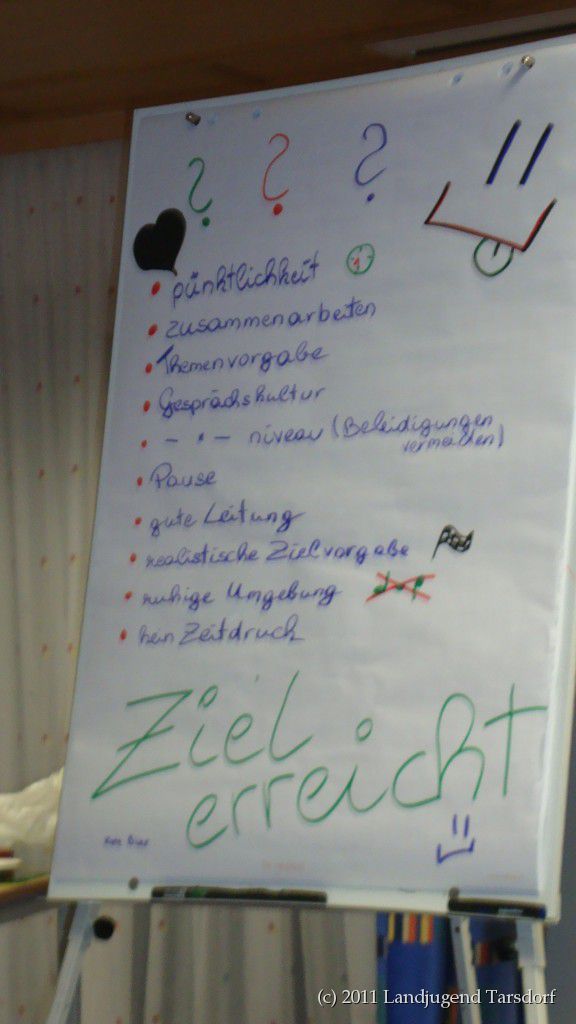 ? ? ?
• pünktlichkeit
• zusammenarbeiten
• Themenvorgabe
• Gesprächskultur
• – " – niveau (Beleidigungen
vermeiden)
• Pause
• gute Leitung
• realistische Zielvorgabe
• ruhige Umgebung
• kein Zeitdruck
Ziel
erreicht
(c) 2011 Landjugend Tarsdorf